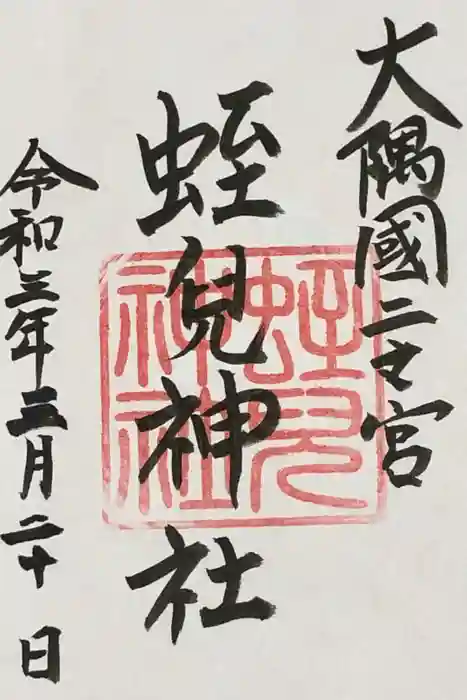 大隅國二之宮
蛭兒神社
令和三年三月二十日
蛭兒
神社